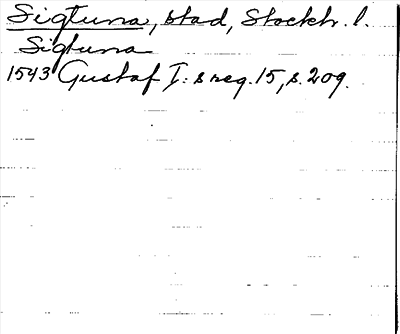 Sigtuna, stad, Stockh. l.
Sigtuna
1543 Gustaf I:s reg. 15, s. 209.